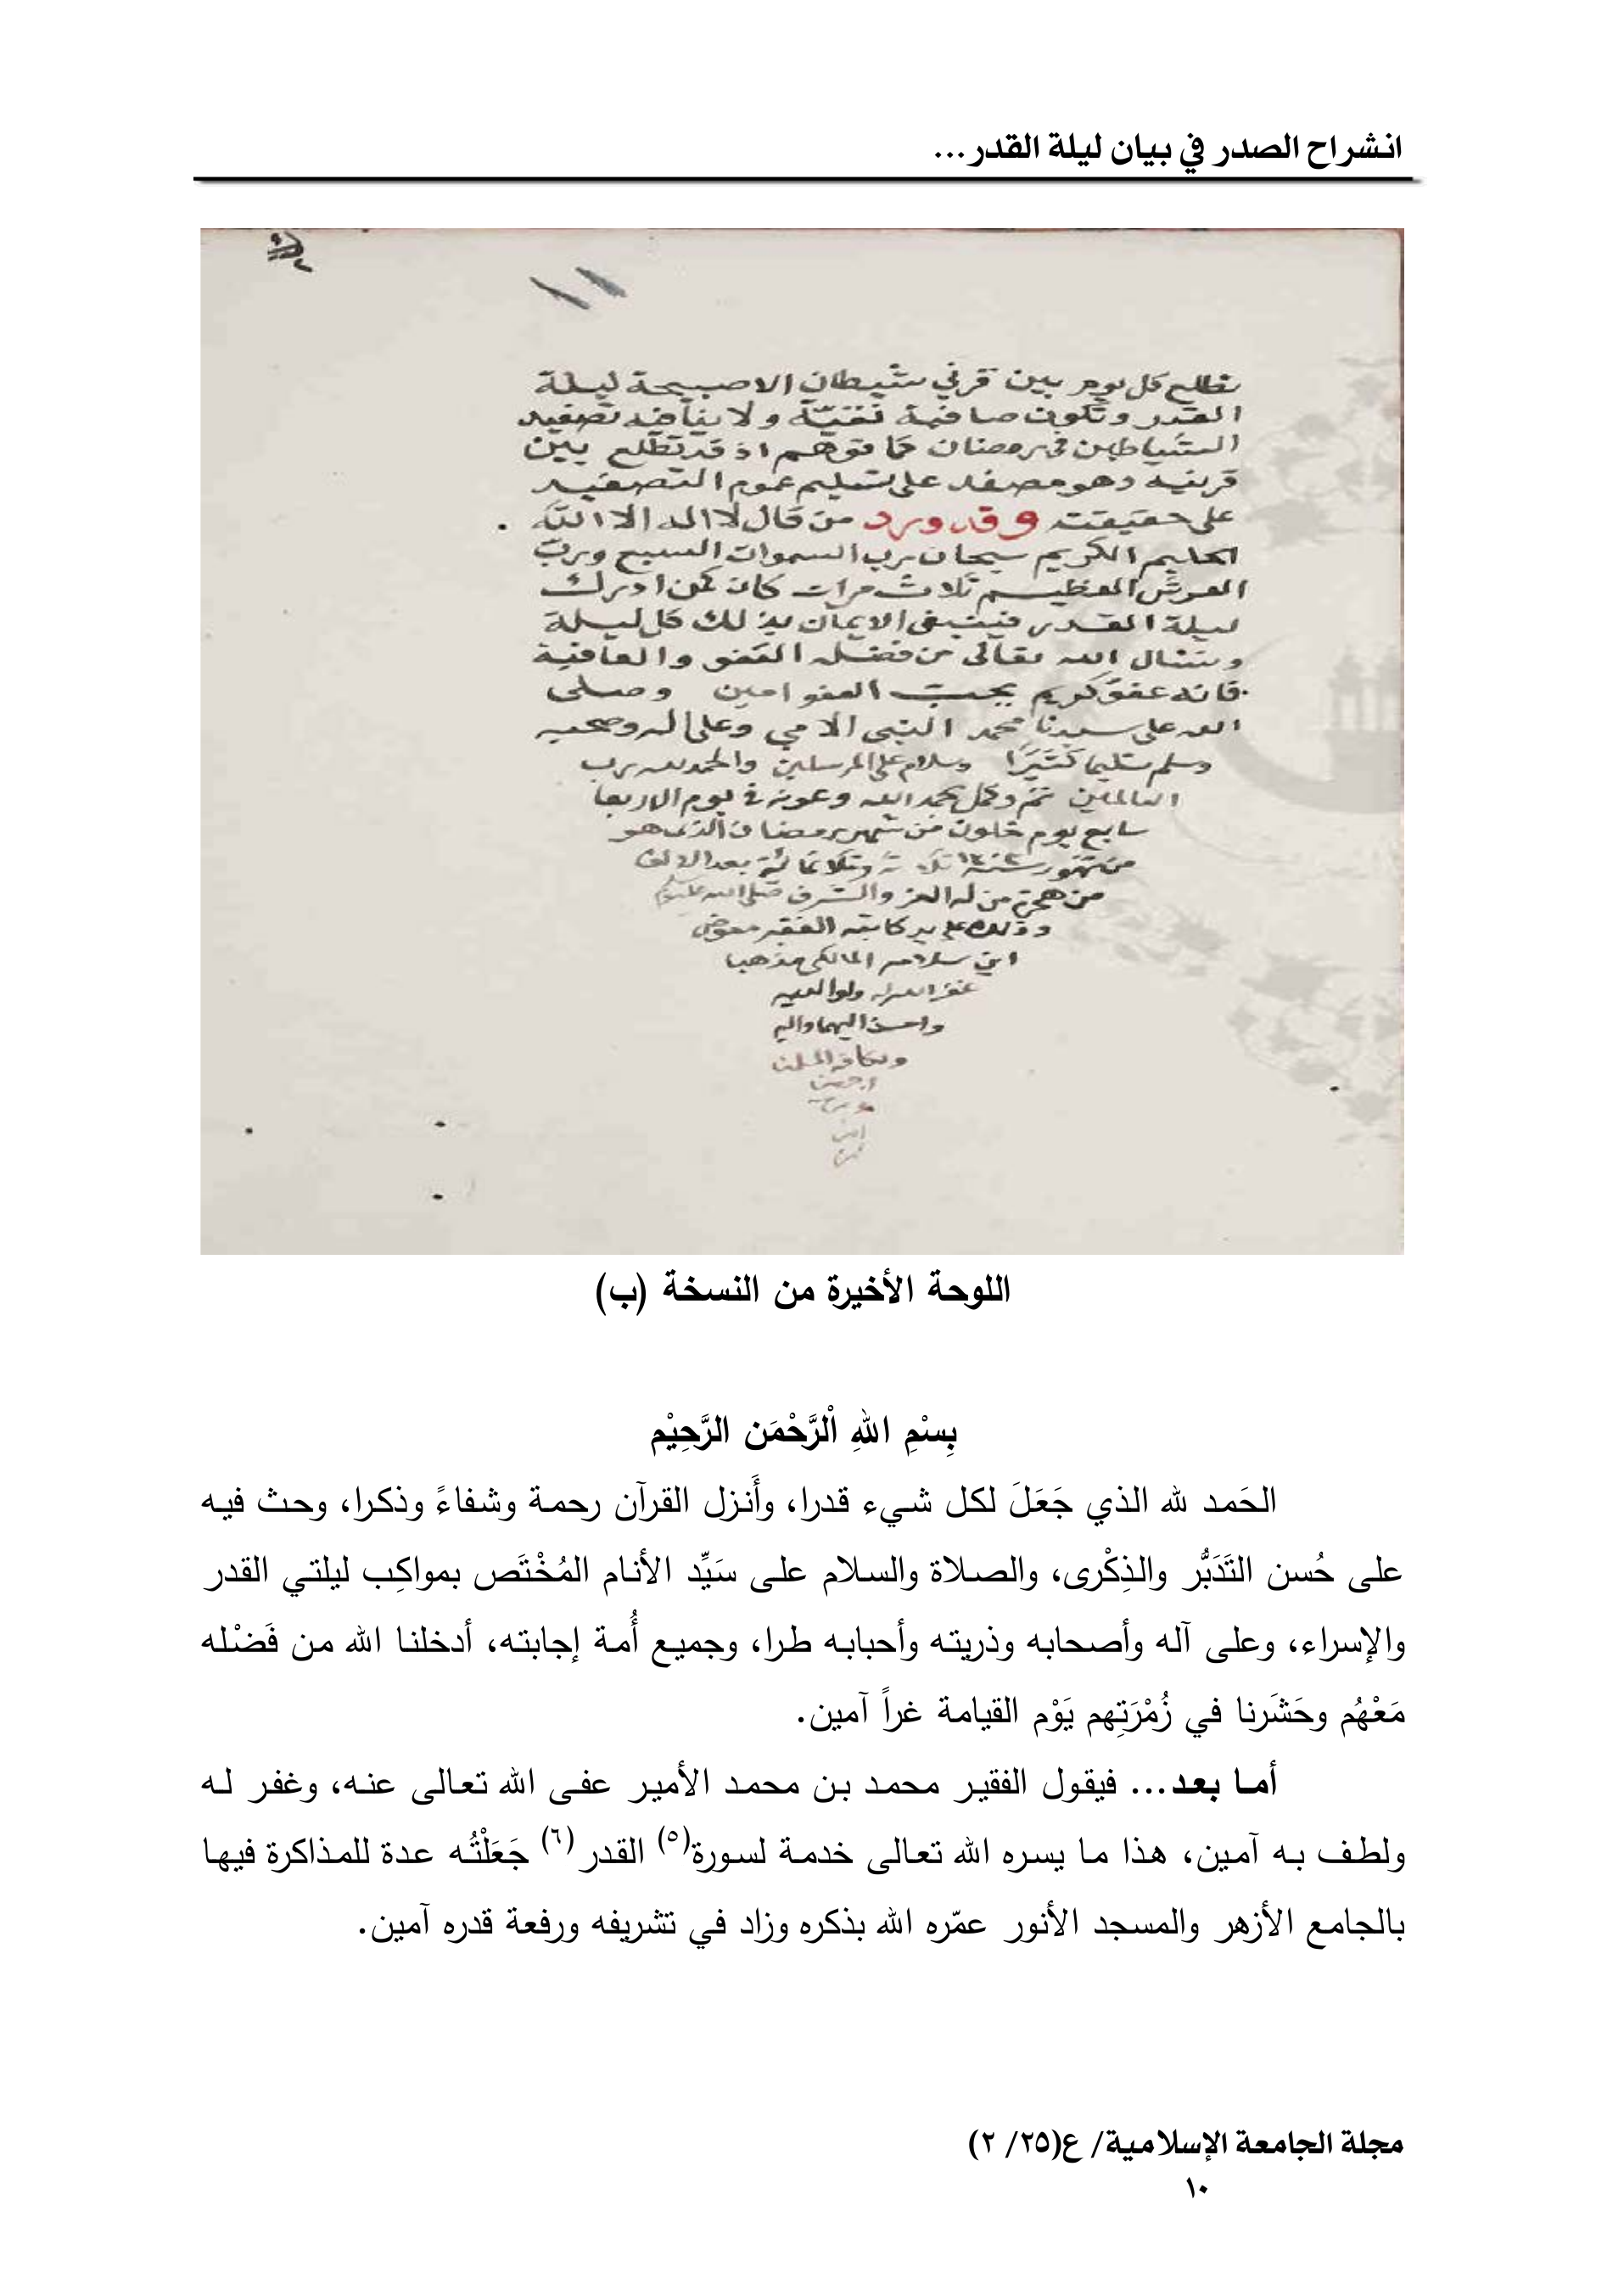 انشراح الصدر في بيان ليلة القدر...
تطلع كل يوم بين قرني شيطان الا صبيحة ليلة
القدر وتكون صافية نقيّة ولا ينافيه تصفيد
الشياطين في رمضان كما توهم اذ قد تطلع بين
قرنيه وهو مصفد على تسليم عموم التصفيد
على حقيقته وقد ورد من قال لا اله الا الله
الحليم الكريم سبحان رب السموات السبع ورب
العرش العظيم ثلاث مرات كان كمن ادرك
ليلة القدر فينبغي الاتيان بذلك كل ليلة
ونسال الله تعالى من فضله العفو والعافية
فانه عفو كريم يحب العفو امين وصلى
الله على سيدنا محمد النبي الامي وعلى اله وصحبه
وسلم تسليما كثيرًا وسلام على المرسلين والحمد لله رب
العالمين تم وكمل بحمد الله وعونه في يوم الاربعا
سابع يوم خلون من شهر رمضان الذي هو
من شهور سنة ١٣٠٣ ثلاثة وثلاثمائة بعد الالف
من هجرة من له العز والشرف صلى الله عليه وسلم
وذلك على يد كاتبه الفقير معوض
ابن سلامه المالكي مذهبا
غفر الله له ولوالديه
واحسن اليهما واليه
ولكافة المسلمين
اللوحة الأخيرة من النسخة (ب)
بِسْمِ اللهِ اْلرَّحْمَن الرَّحِيْم
الحَمد لله الذي جَعَلَ لكل شيء قدرا، وأَنزل القرآن رحمة وشفاءً وذكرا، وحث فيه
على حُسن التَدَبُّر والذِكْرى، والصلاة والسلام على سَيِّد الأنام المُخْتَص بمواكِب ليلتي القدر
والإسراء، وعلى آله وأصحابه وذريته وأحبابه طرا، وجميع أُمة إجابته، أدخلنا الله من فَضْله
مَعْهُم وحَشَرنا في زُمْرَتِهم يَوْم القيامة غراً آمين.
أما بعد... فيقول الفقير محمد بن محمد الأمير عفى الله تعالى عنه، وغفر له
ولطف به آمين، هذا ما يسره الله تعالى خدمة لسورة(٥) القدر (٦) جَعَلْتُه عدة للمذاكرة فيها
بالجامع الأزهر والمسجد الأنور عمّره الله بذكره وزاد في تشريفه ورفعة قدره آمين.
مجلة الجامعة الإسلامية/ ع(٢٥/ ٢)
١٠